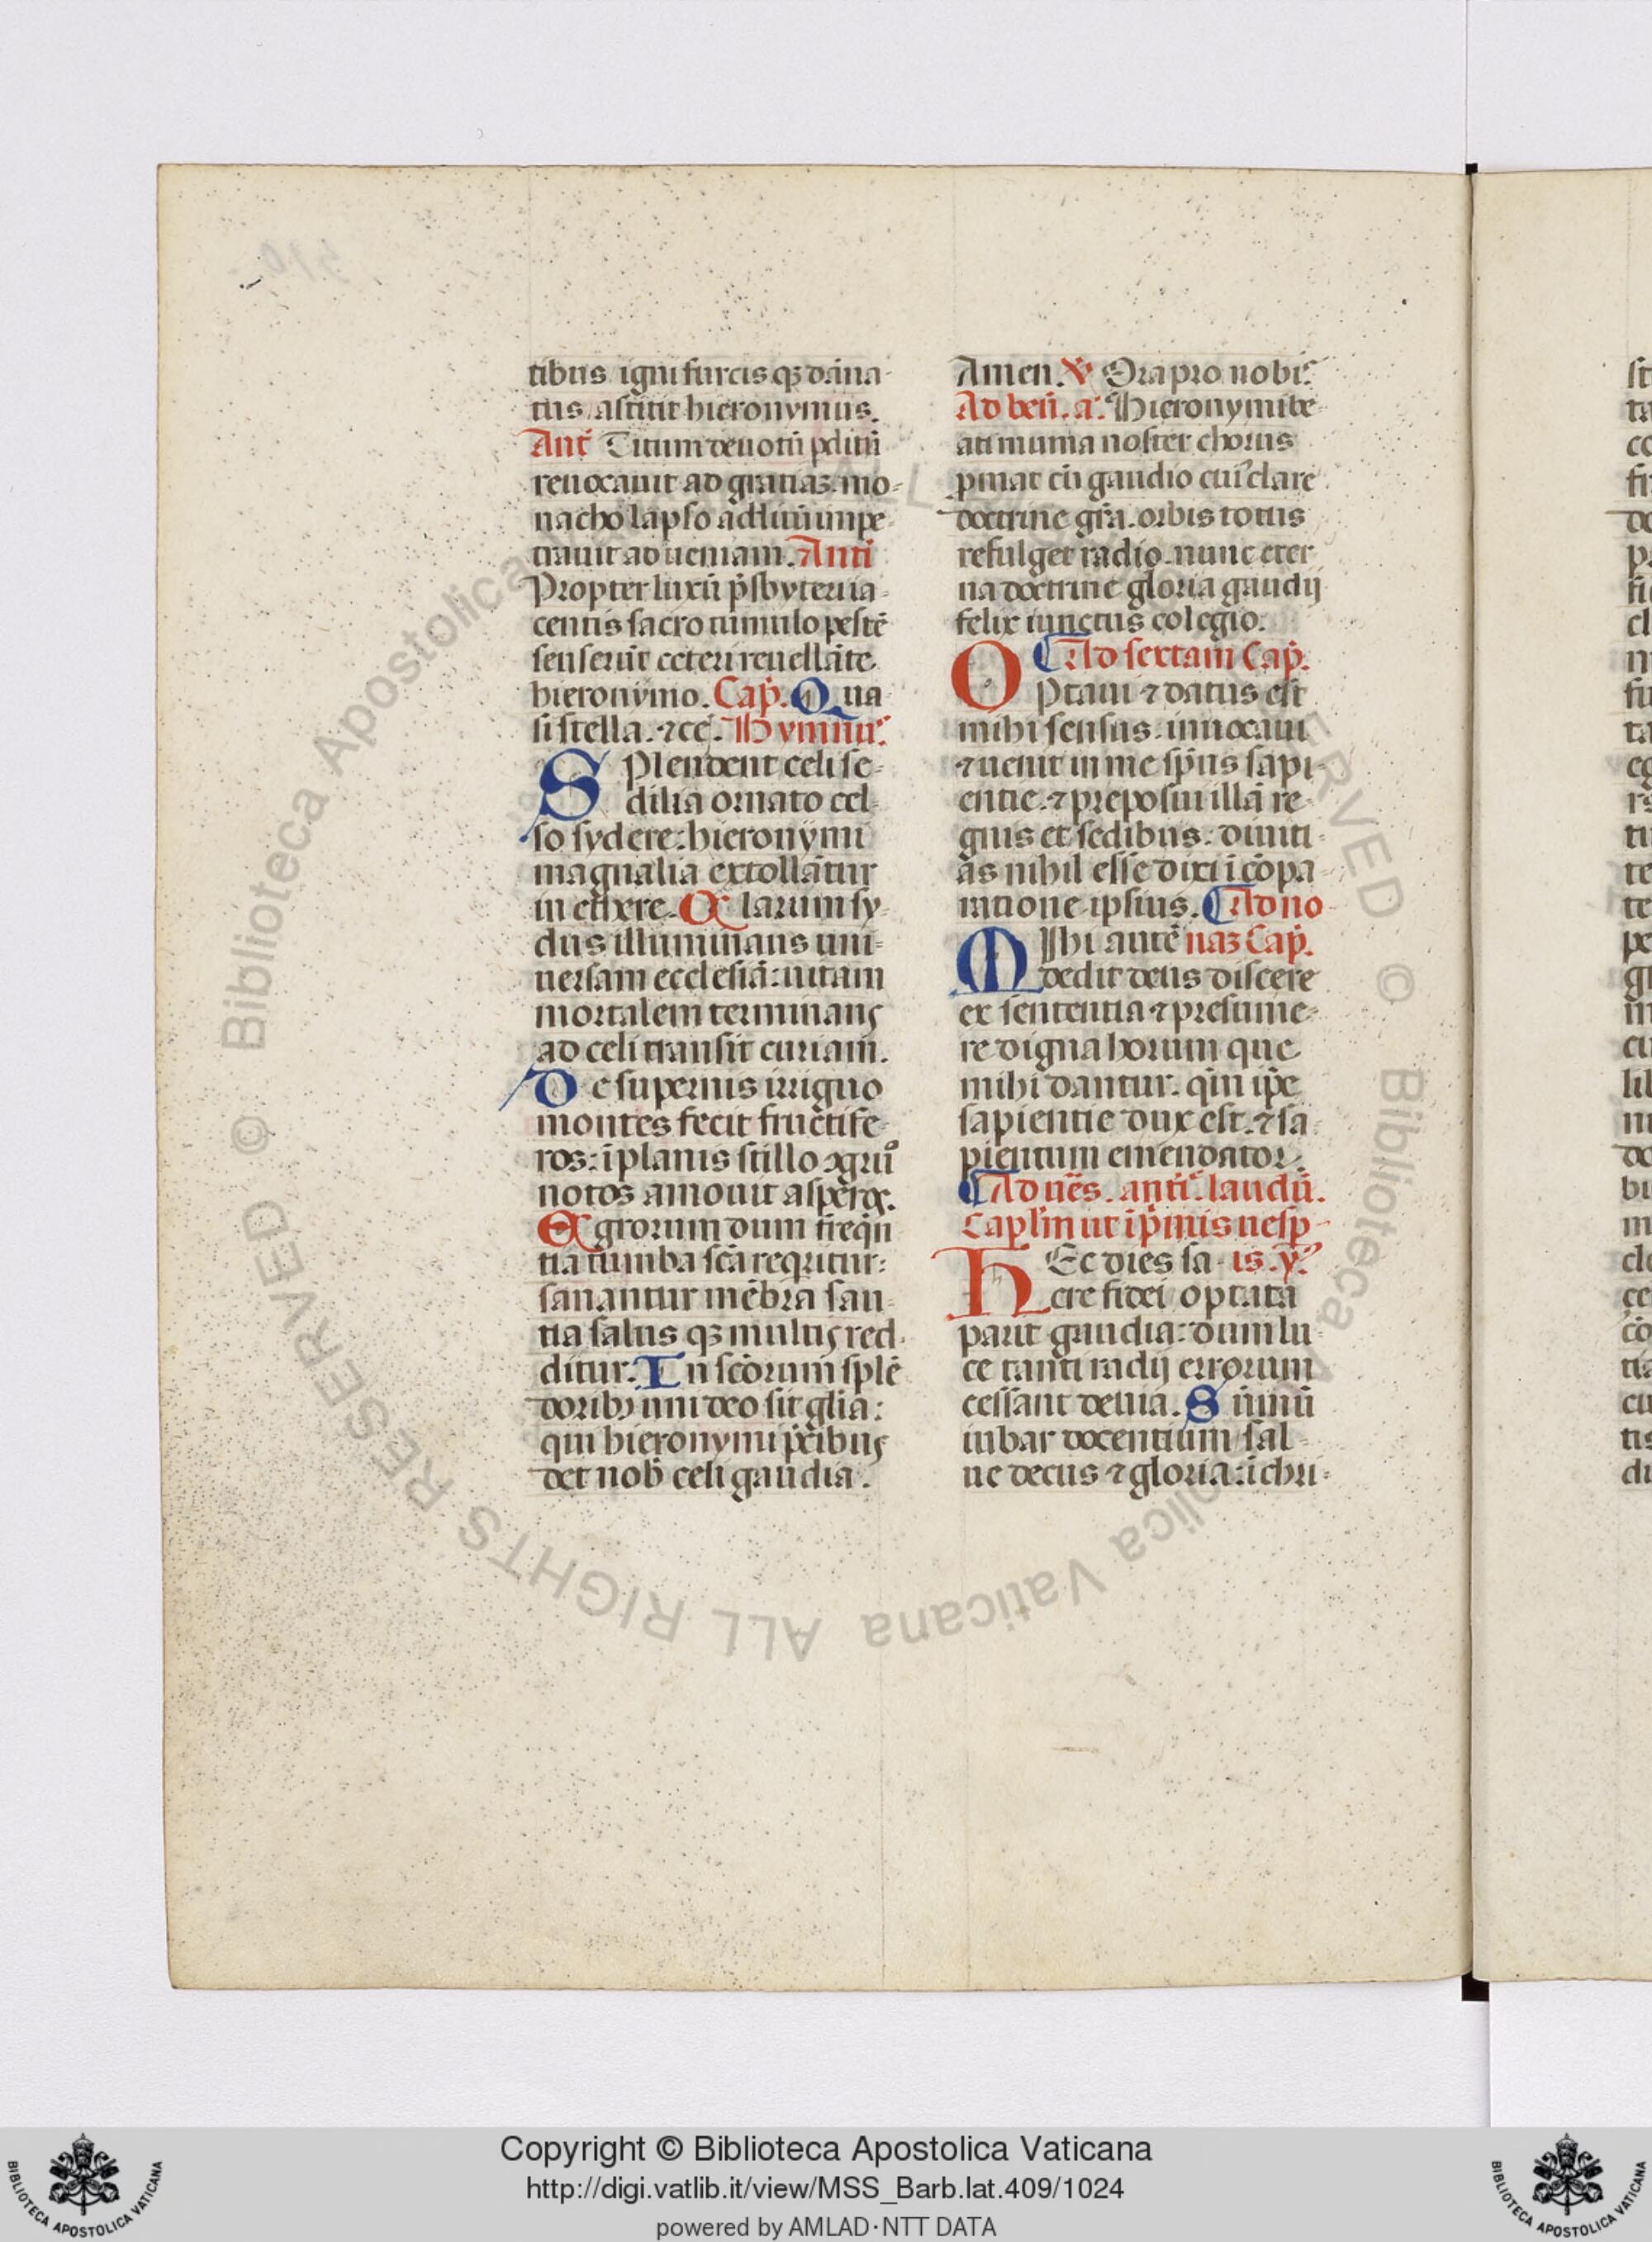 tibus igni furcis qꝫ dāna-
tus astitit hieronymus.
Anť Titum deuotū pditū
reuocauit ad gratiaꝫ. mo-
nacho lapso adhuū impe-
trauit ad ueniam. Anti
Propter luxū p̄sbyteri ia-
centis sacro tumulo pestē
senserūt ceteri reuellāte
hieronymo. Cap̄. Qua
si stella. ⁊cc̄. Hymnuˢ
SPlendent celi se-
dilia ornato cel-
so sydere: hieronymi
magnalia extollātur
in ethere. Clarum sy-
dus illuminans uni-
uersam ecclesiā: uitam
mortalem terminans
ad celi transit curiam.
De supernis irriguo
montes fecit fructife-
ros: ī planis stillo ꝯgruº
notos amouit asperos.
Egrorum dum freqn̄
tia tumba scā requitur:
sanantur mēbra san-
tia salus qꝫ multis red-
ditur. In scōrum splē
doribꝫ uni deo sit glīa:
qui hieronymi p̄cibus
det nob̄ celi gaudia.
Amen. ℣ Ora pro nobiˢ
Ad ben̄. a. Hieronymi be-
ati munia noster chorus
pmat cū gaudio cuiˢ clare
doctrine grā. orbis totus
refulget radio. nunc eter
na doctrine gloria gaudij
felix iunctus colegio.
Ad sextam Cap̄.
OPtaui ⁊ datus est
mihi sensus. inuocaui
⁊ uenit in me spūs sapi-
entie. ⁊ preposui illā re-
gnis et sedibus. diuiti-
as nihil esse dixi ī cōpa-
ratione ipsius. Ad no-
MIhi autē naꝫ Cap̄.
dedit deus discere
ex sententia ⁊ presume-
re digna horum que
mihi dantur. qm̄ ipē
sapientie dux est. ⁊ sa-
pientum emendator.
Ad ues̄. antiᵉ. laudū.
Caplm̄ ut ī p̄mis uesp̄-
HEc dies sa- is. y.ˢ
cre fidei optata
parit gaudia: dum lu-
ce tanti radij errorum
cessant deuia. Sūmū
iubar docentium sal-
ue decus ⁊ gloria: ī chri-
Copyright © Biblioteca Apostolica Vaticana
http://digi.vatlib.it/view/MSS_Barb.lat.409/1024
powered by AMLAD·NTT DATA
© Biblioteca Apostolica Vaticana ALL RIGHTS RESERVED
BIBLIOTECA APOSTOLICA VATICANA
BIBLIOTECA APOSTOLICA VATICANA